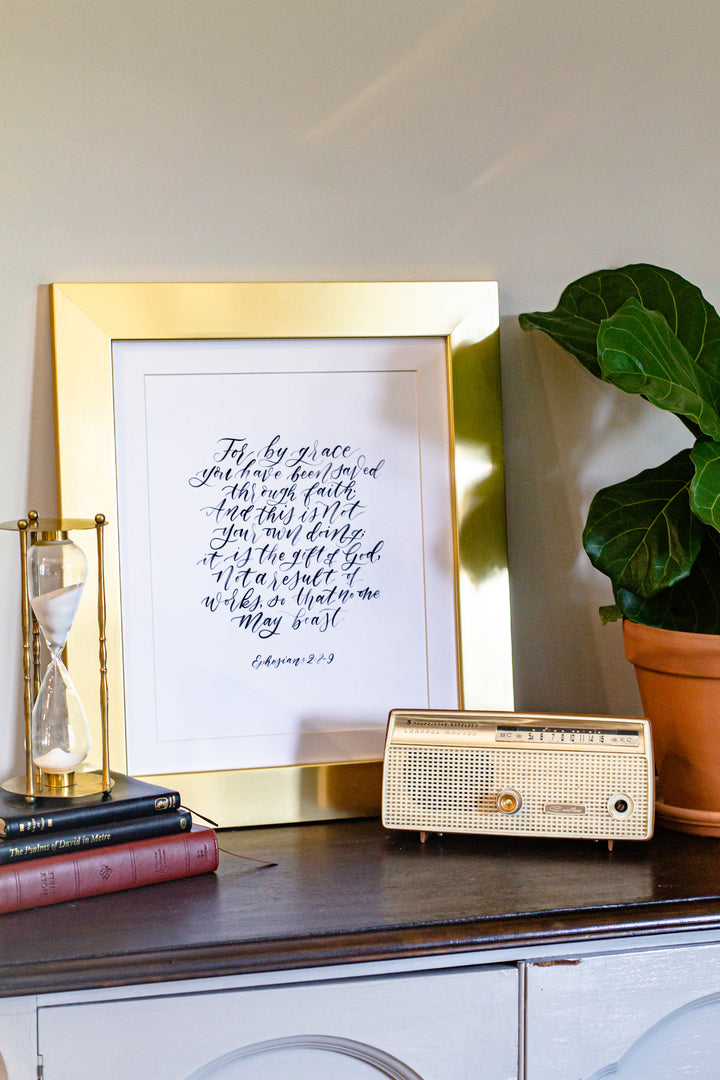 For by grace
you have been saved
through faith.
And this is Not
your own doing,
it is the gift of God,
Not a result of
works, so that no one
May boast
Ephesians 2:8-9
The Psalms of David in Metre
HOLY
BIBLE
5½ 6 7 8 10 12 14 16